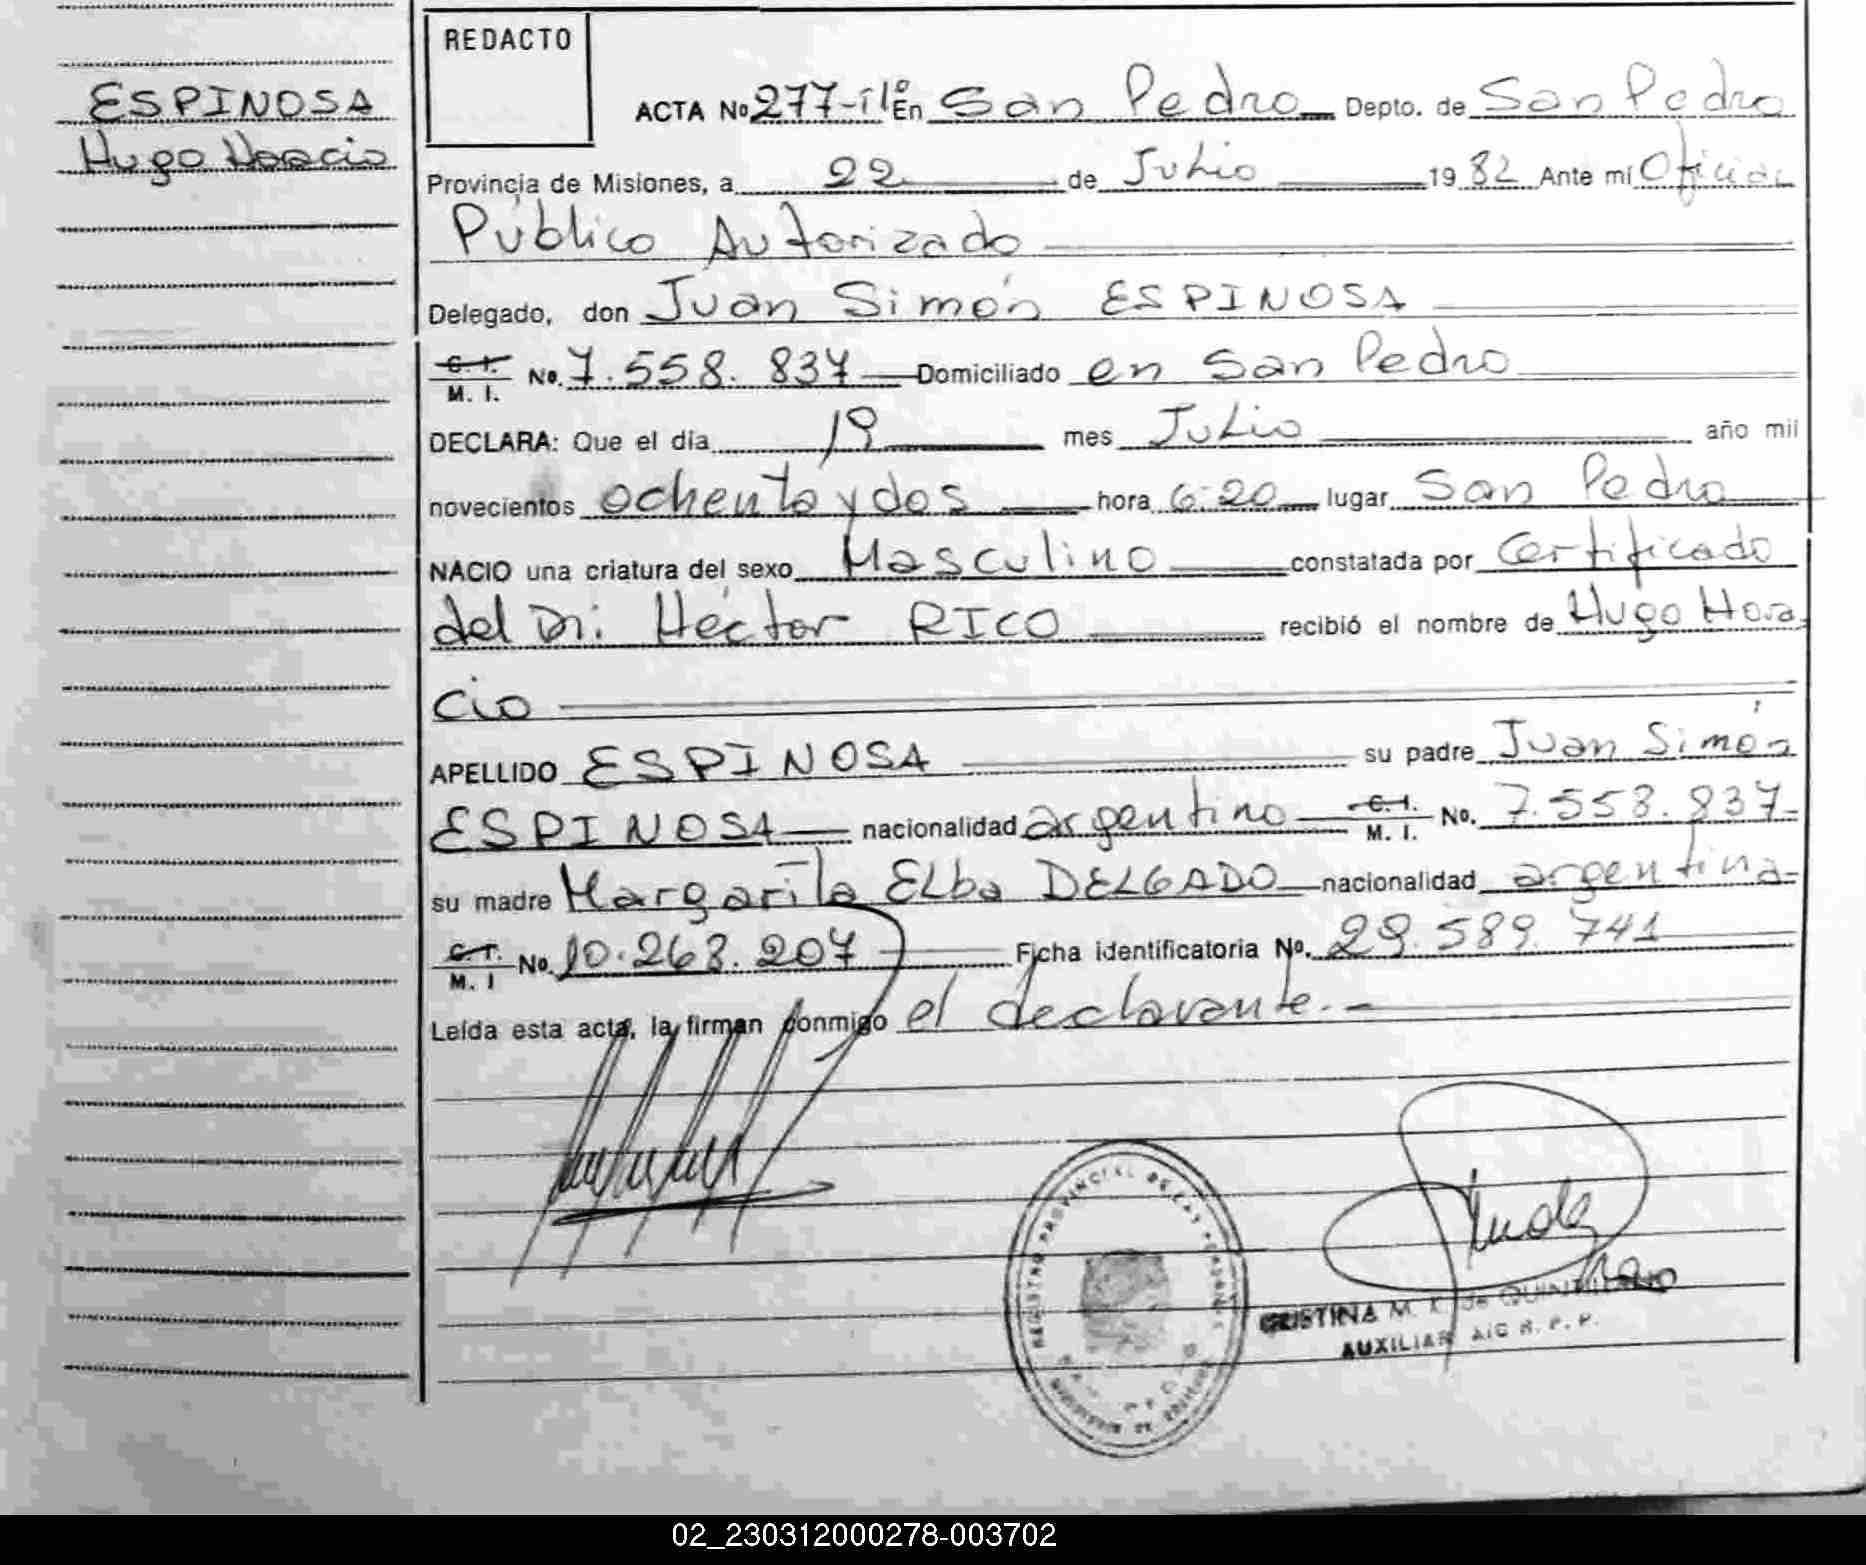 REDACTO
ESPINOSA
Hugo Horacio
ACTA Nº 277-Iº En San Pedro Depto. de San Pedro
Provincia de Misiones, a 22 de Julio 1982 Ante mí Oficial
Público Autorizado
Delegado, don Juan Simón ESPINOSA
C. I. M. I. Nº. 7.558.837 Domiciliado en San Pedro
DECLARA: Que el día 19 mes Julio año mil
novecientos ochenta y dos hora 6:20 lugar San Pedro
NACIO una criatura del sexo Masculino constatada por Certificado
del Dr. Héctor RICO recibió el nombre de Hugo Hora
cio
APELLIDO ESPINOSA su padre Juan Simón
ESPINOSA nacionalidad argentino C. I. M. I. Nº. 7.558.837
su madre Margarita Elba DELGADO nacionalidad argentina
C. I. M. I Nº. 10.268.207 Ficha identificatoria Nº. 29.589.741
Leída esta acta, la firman conmigo el declarante.-
REGISTRO PROVINCIAL DE LAS PERSONAS
CRISTINA M. K. de
AUXILIAR A/C R. P. P.
02_230312000278-003702